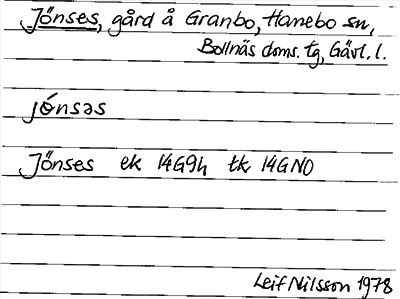 Jönses, gård å Granbo, Hanebo sn,
Bollnäs doms. tg, Gävl. l.
jö́nsəs
Jönses ek 14G9h tk 14GNO
Leif Nilsson 1978